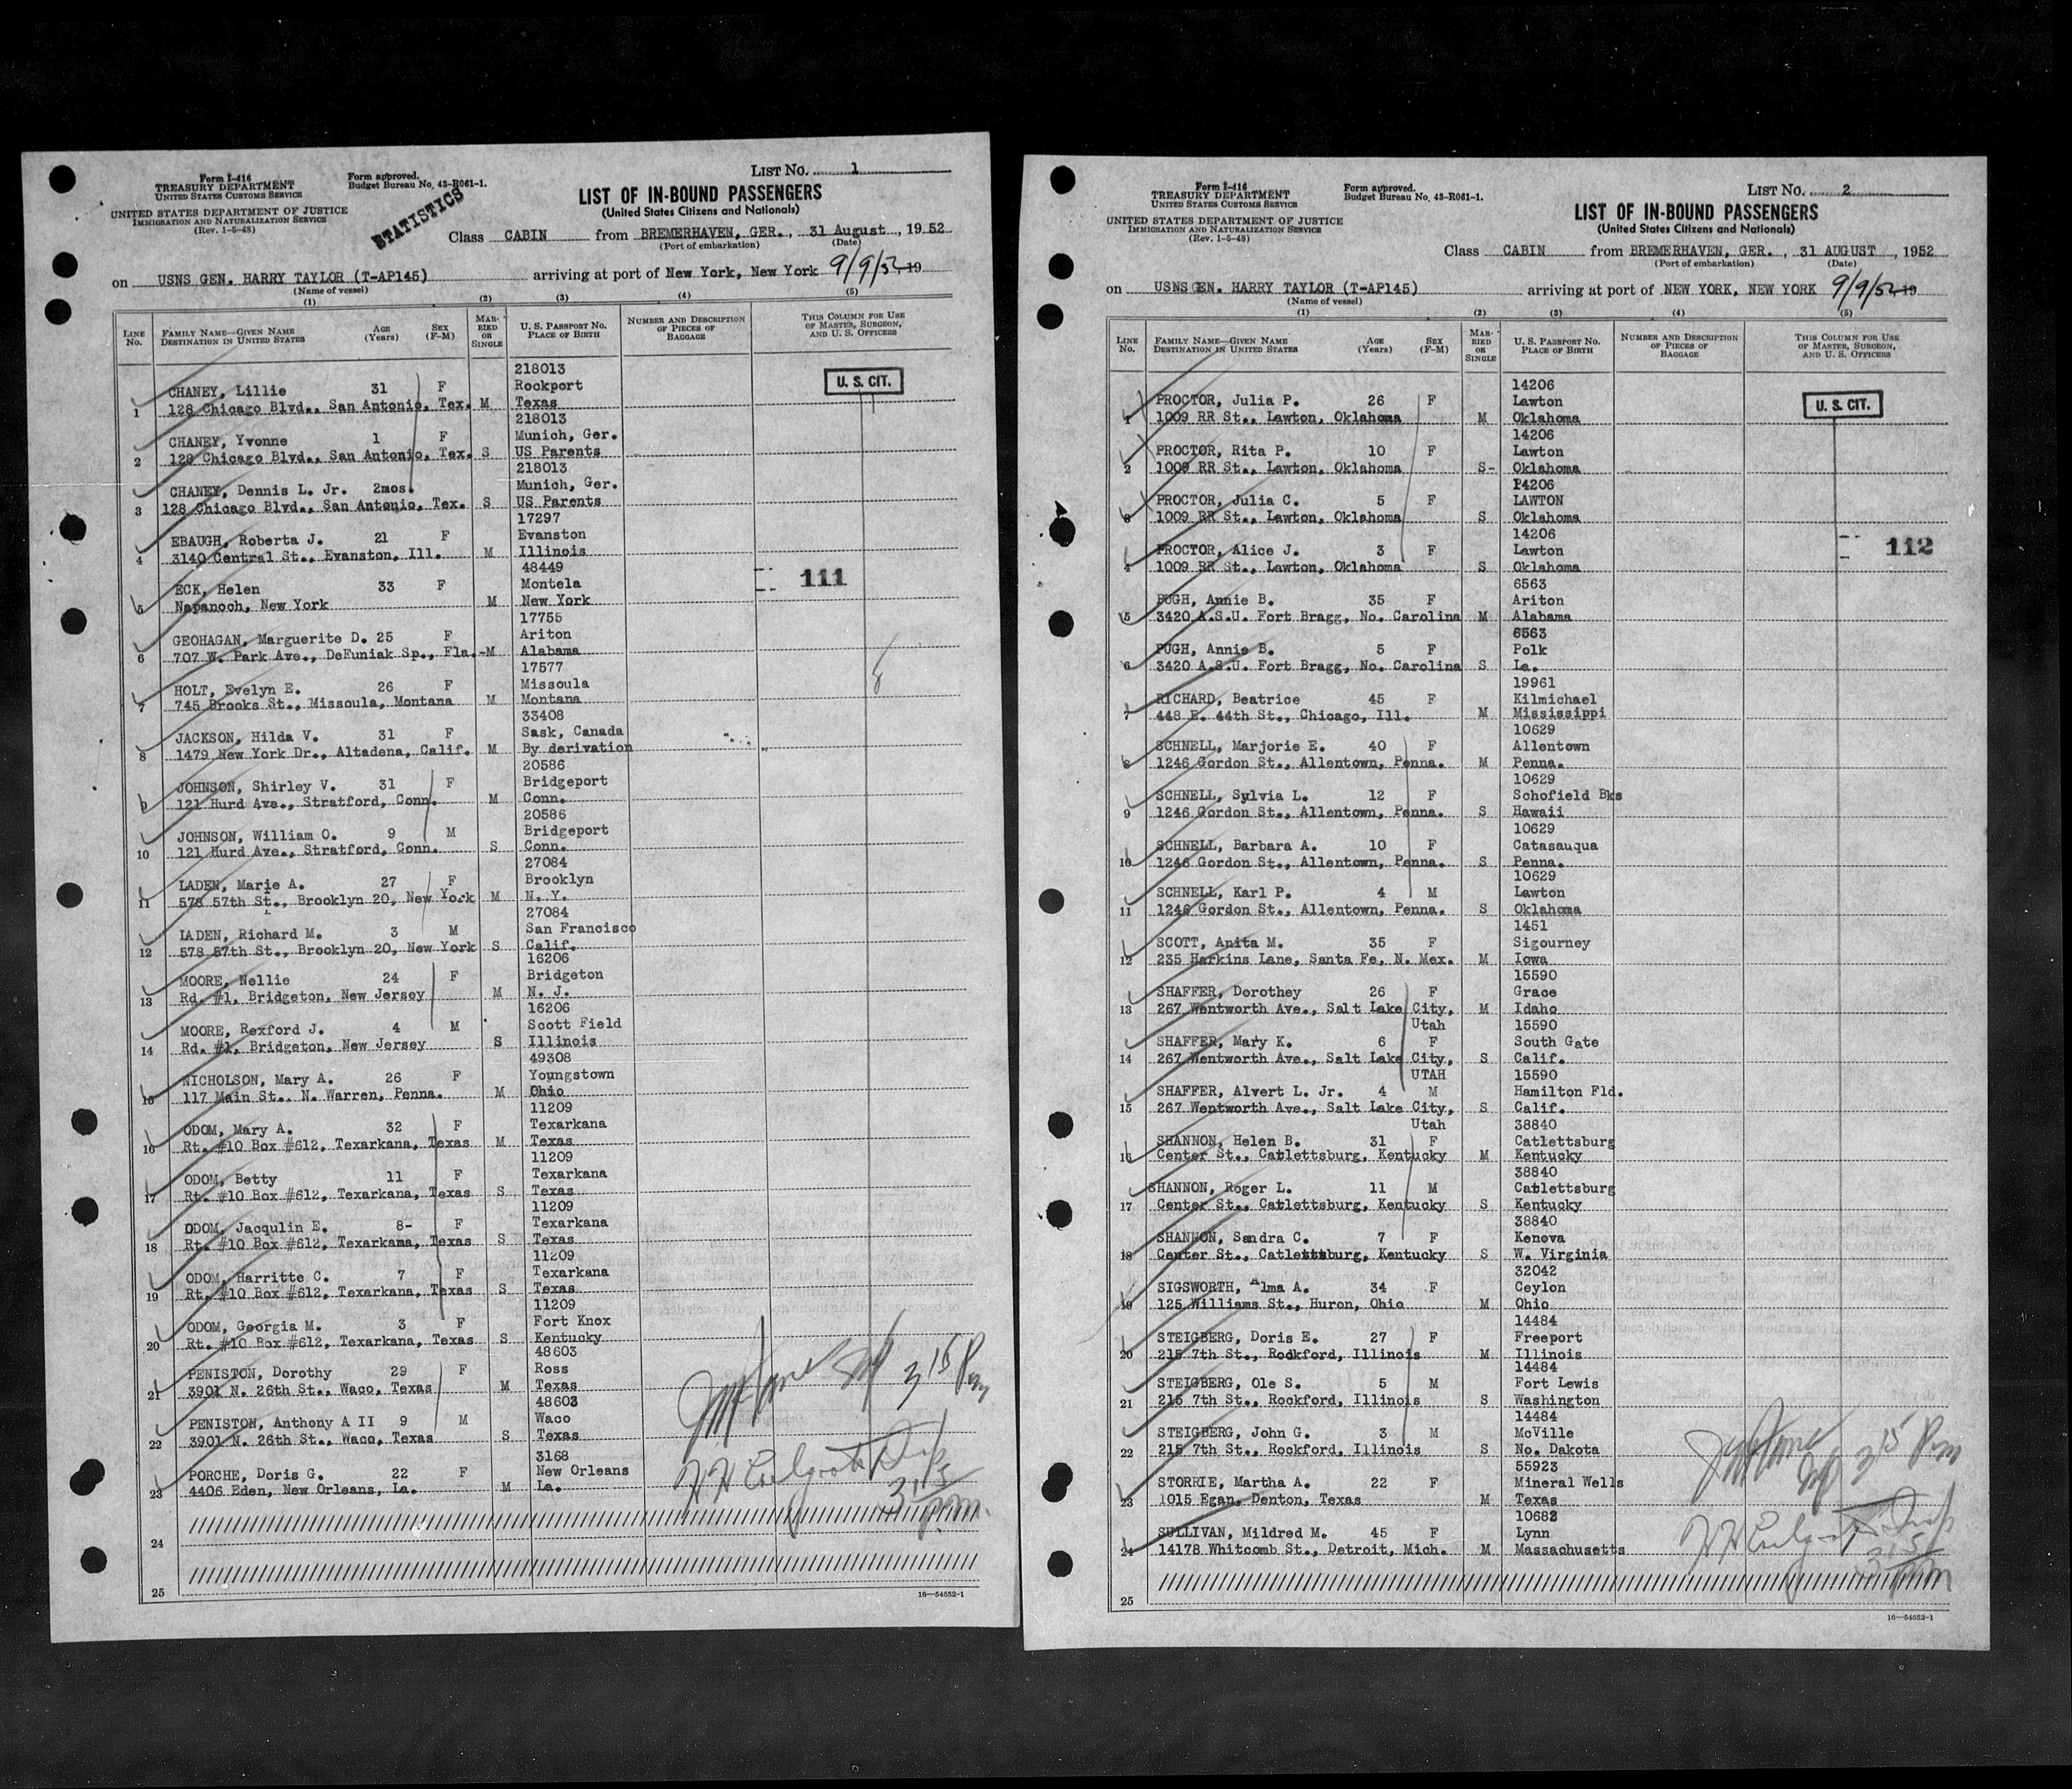 Form I-416
TREASURY DEPARTMENT
UNITED STATES CUSTOMS SERVICE
UNITED STATES DEPARTMENT OF JUSTICE
IMMIGRATION AND NATURALIZATION SERVICE
(Rev. 1-5-48)
Form approved.
Budget Bureau No. 43-R061-1.
STATISTICS
LIST No. 1
LIST OF IN-BOUND PASSENGERS
(United States Citizens and Nationals)
Class CABIN from BREMERHAVEN, GER., 31 August, 1952
(Port of embarkation) (Date)
on USNS GEN. HARRY TAYLOR (T-AP145) arriving at port of New York, New York 9/9/52, 19
(Name of vessel)
(1) (2) (3) (4) (5)
LINE No. FAMILY NAME—GIVEN NAME DESTINATION IN UNITED STATES AGE (Years) SEX (F-M) MARRIED OR SINGLE U. S. PASSPORT NO. PLACE OF BIRTH NUMBER AND DESCRIPTION OF PIECES OF BAGGAGE THIS COLUMN FOR USE OF MASTER, SURGEON, AND U. S. OFFICERS
218013
CHANEY, Lillie 31 F Rockport U. S. CIT.
1 128 Chicago Blvd., San Antonio, Tex. M Texas
218013
CHANEY, Yvonne 1 F Munich, Ger.
2 128 Chicago Blvd., San Antonio, Tex. S US Parents
218013
CHANEY, Dennis L. Jr. 2mos. Munich, Ger.
3 128 Chicago Blvd., San Antonio, Tex. S US Parents
17297
EBAUGH, Roberta J. 21 F Evanston
4 3140 Central St., Evanston, Ill. M Illinois
48449
ECK, Helen 33 F Montela 111
5 Napanoch, New York M New York
17755
GEOHAGAN, Marguerite D. 25 F Ariton
6 707 W. Park Ave., DeFuniak Sp., Fla.-M Alabama
17577
HOLT, Evelyn E. 26 F Missoula
7 745 Brooks St., Missoula, Montana M Montana
33408
JACKSON, Hilda V. 31 F Sask, Canada
8 1479 New York Dr., Altadena, Calif. M By derivation
20586
JOHNSON, Shirley V. 31 F Bridgeport
9 121 Hurd Ave., Stratford, Conn. M Conn.
20586
JOHNSON, William O. 9 M Bridgeport
10 121 Hurd Ave., Stratford, Conn. S Conn.
27084
LADEN, Marie A. 27 F Brooklyn
11 578 57th St., Brooklyn 20, New York M N. Y.
27084
LADEN, Richard M. 3 M San Francisco
12 578 57th St., Brooklyn 20, New York S Calif.
16206
MOORE, Nellie 24 F Bridgeton
13 Rd. #1, Bridgeton, New Jersey M N. J.
16206
MOORE, Rexford J. 4 M Scott Field
14 Rd. #1, Bridgeton, New Jersey S Illinois
49308
NICHOLSON, Mary A. 26 F Youngstown
15 117 Main St., N. Warren, Penna. M Ohio
11209
ODOM, Mary A. 32 F Texarkana
16 Rt. #10 Box #612, Texarkana, Texas M Texas
11209
ODOM, Betty 11 F Texarkana
17 Rt. #10 Box #612, Texarkana, Texas S Texas
11209
ODOM, Jacqulin E. 8- F Texarkana
18 Rt. #10 Box #612, Texarkama, Texas S Texas
11209
ODOM, Harritte C. 7 F Texarkana
19 Rt. #10 Box #612, Texarkana, Texas S Texas
11209
ODOM, Georgia M. 3 F Fort Knox
20 Rt. #10 Box #612, Texarkana, Texas S Kentucky
48603
PENISTON, Dorothy 29 F Ross
21 3901 N. 26th St., Waco, Texas M Texas
48603
PENISTON, Anthony A II 9 M Waco
22 3901 N. 26th St., Waco, Texas S Texas
3168
PORCHE, Doris G. 22 F New Orleans
23 4406 Eden, New Orleans, La. M La.
3 15 Pm
3 15 p.m.
24
25
16—54652-1
Form I-416
TREASURY DEPARTMENT
UNITED STATES CUSTOMS SERVICE
UNITED STATES DEPARTMENT OF JUSTICE
IMMIGRATION AND NATURALIZATION SERVICE
(Rev. 1-5-48)
Form approved.
Budget Bureau No. 43-R061-1.
LIST No. 2
LIST OF IN-BOUND PASSENGERS
(United States Citizens and Nationals)
Class CABIN from BREMERHAVEN, GER., 31 AUGUST, 1952
(Port of embarkation) (Date)
on USNS GEN. HARRY TAYLOR (T-AP145) arriving at port of NEW YORK, NEW YORK 9/9/52, 19
(Name of vessel)
(1) (2) (3) (4) (5)
LINE No. FAMILY NAME—GIVEN NAME DESTINATION IN UNITED STATES AGE (Years) SEX (F-M) MARRIED OR SINGLE U. S. PASSPORT NO. PLACE OF BIRTH NUMBER AND DESCRIPTION OF PIECES OF BAGGAGE THIS COLUMN FOR USE OF MASTER, SURGEON, AND U. S. OFFICERS
14206
PROCTOR, Julia P. 26 F Lawton U. S. CIT.
1 1009 RR St., Lawton, Oklahoma M Oklahoma
14206
PROCTOR, Rita P. 10 F Lawton
2 1009 RR St., Lawton, Oklahoma S- Oklahoma
14206
PROCTOR, Julia C. 5 F LAWTON
3 1009 RR St., Lawton, Oklahoma S Oklahoma
14206
PROCTOR, Alice J. 3 F Lawton 112
4 1009 RR St., Lawton, Oklahoma S Oklahoma
6563
PUGH, Annie B. 35 F Ariton
5 3420 A.S.U. Fort Bragg, No. Carolina M Alabama
6563
PUGH, Annie B. 5 F Polk
6 3420 A.S.U. Fort Bragg, No. Carolina S La.
19961
RICHARD, Beatrice 45 F Kilmichael
7 448 E. 44th St., Chicago, Ill. M Mississippi
10629
SCHNELL, Marjorie E. 40 F Allentown
8 1246 Gordon St., Allentown, Penna. M Penna.
10629
SCHNELL, Sylvia L. 12 F Schofield Bks
9 1246 Gordon St., Allentown, Penna. S Hawaii
10629
SCHNELL, Barbara A. 10 F Catasauqua
10 1246 Gordon St., Allentown, Penna. S Penna.
10629
SCHNELL, Karl P. 4 M Lawton
11 1246 Gordon St., Allentown, Penna. S Oklahoma
1451
SCOTT, Anita M. 35 F Sigourney
12 235 Harkins Lane, Santa Fe, N. Mex. M Iowa
15590
SHAFFER, Dorothey 26 F Grace
13 267 Wentworth Ave., Salt Lake City, M Idaho
Utah 15590
SHAFFER, Mary K. 6 F South Gate
14 267 Wentworth Ave., Salt Lake City, S Calif.
UTAH 15590
SHAFFER, Alvert L. Jr. 4 M Hamilton Fld.
15 267 Wentworth Ave., Salt Lake City, S Calif.
Utah 38840
SHANNON, Helen B. 31 F Catlettsburg
16 Center St., Catlettsburg, Kentucky M Kentucky
38840
SHANNON, Roger L. 11 M Catlettsburg
17 Center St., Catlettsburg, Kentucky S Kentucky
38840
SHANNON, Sandra C. 7 F Kenova
18 Center St., Catlettsburg, Kentucky S W. Virginia
32042
SIGSWORTH, Alma A. 34 F Ceylon
19 125 Williams St., Huron, Ohio M Ohio
14484
STEIGBERG, Doris E. 27 F Freeport
20 215 7th St., Rodkford, Illinois M Illinois
14484
STEIGBERG, Ole S. 5 M Fort Lewis
21 215 7th St., Rockford, Illinois S Washington
14484
STEIGBERG, John G. 3 M McVille
22 215 7th St., Rockford, Illinois S No. Dakota
55923
STORRIE, Martha A. 22 F Mineral Wells
23 1015 Egan, Denton, Texas M Texas
10682
SULLIVAN, Mildred M. 45 F Lynn
24 14178 Whitcomb St., Detroit, Mich. M Massachusetts
3 15 Pm
3 15 pm
25
16—54652-1